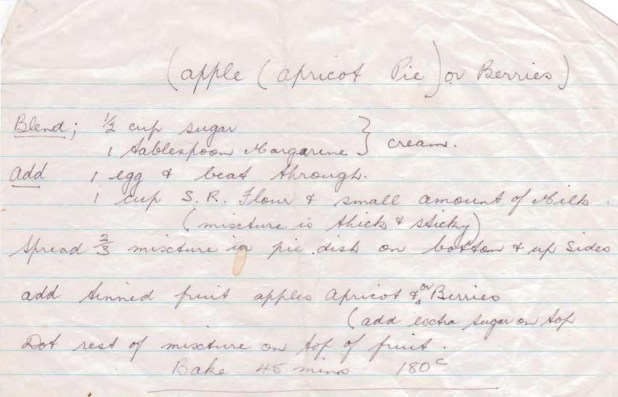 (apple (apricot Pie) or Berries)
Blend; ½ cup sugar
1 tablespoon Margarine } cream.
add 1 egg & beat through.
1 cup S.R. Flour & small amount of Milk.
(mixture is thick & sticky)
Spread ⅔ mixture in pie dish on bottom & up sides
add tinned fruit apples apricot & or Berries
(add extra sugar on top
Dot rest of mixture on top of fruit.
Bake 45 mins 180c